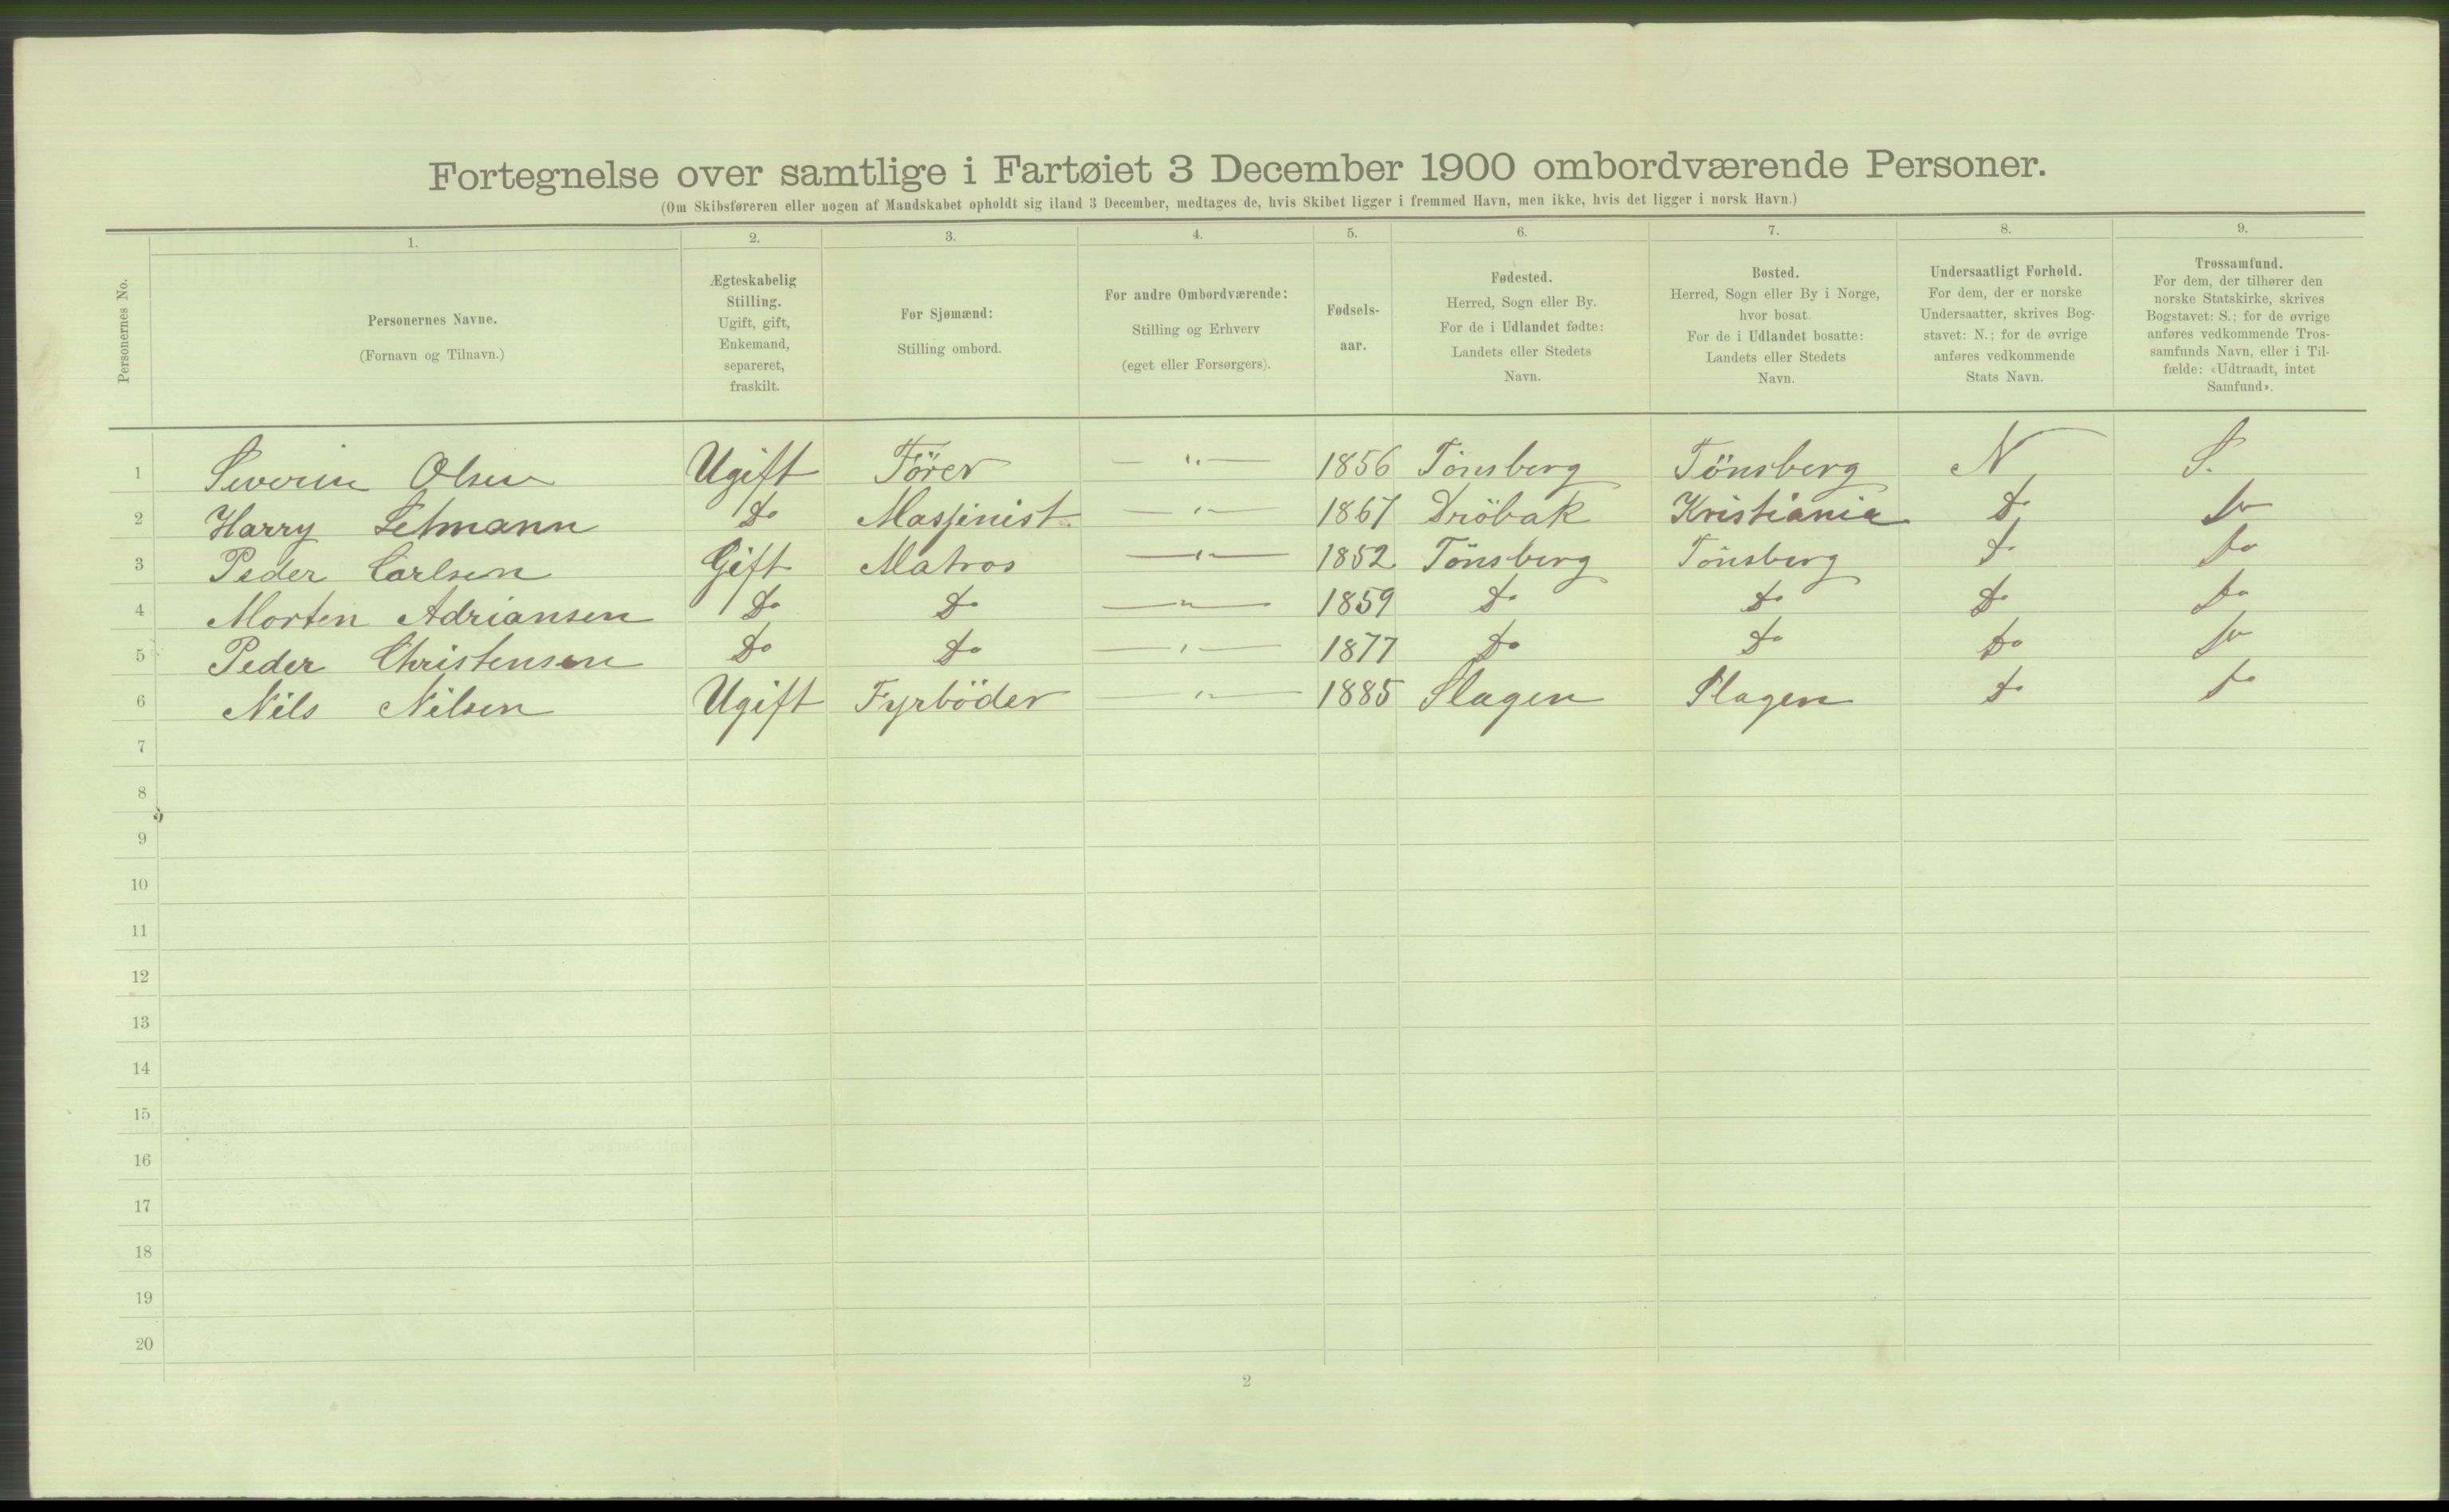 Fortegnelse over samtlige i Fartøiet 3 December 1900 ombordværende Personer.
(Om Skibsføreren eller nogen af Mandskabet opholdt sig iland 3 December, medtages de, hvis Skibet ligger i fremmed Havn, men ikke, hvis det ligger i norsk Havn.)
Personernes No.
1. 2. 3. 4. 5. 6. 7. 8. 9.
Personernes Navne.
(Fornavn og Tilnavn.)
Ægteskabelig
Stilling.
Ugift, gift,
Enkemand,
separeret,
fraskilt.
For Sjømænd:
Stilling ombord.
For andre Ombordværende:
Stilling og Erhverv
(eget eller Forsørgers).
Fødsels-
aar.
Fødested.
Herred, Sogn eller By.
For de i Udlandet fødte:
Landets eller Stedets
Navn.
Bosted.
Herred, Sogn eller By i Norge,
hvor bosat.
For de i Udlandet bosatte:
Landets eller Stedets
Navn.
Undersaatligt Forhold.
For dem, der er norske
Undersaatter, skrives Bog-
stavet: N.; for de øvrige
anføres vedkommende
Stats Navn.
Trossamfund.
For dem, der tilhører den
norske Statskirke, skrives
Bogstavet: S.; for de øvrige
anføres vedkommende Tros-
samfunds Navn, eller i Til-
fælde: «Udtraadt, intet
Samfund».
1 Severin Olsen Ugift Förer — " — 1856 Tönsberg Tönsberg N S.
2 Harry Do Massinist — " — 1867 Dröbak Kristiania Do Do
3 Peder Carlsen Gift Matros — " — 1852 Tönsberg Tönsberg Do Do
4 Morten Adriansen Do Do — " — 1859 Do Do Do Do
5 Peder Christensen Do Do — " — 1877 Do Do Do Do
6 Nils Nilsen Ugift Fyrböder — " — 1885 Slagen Slagen Do Do
7
8
9
10
11
12
13
14
15
16
17
18
19
20
2